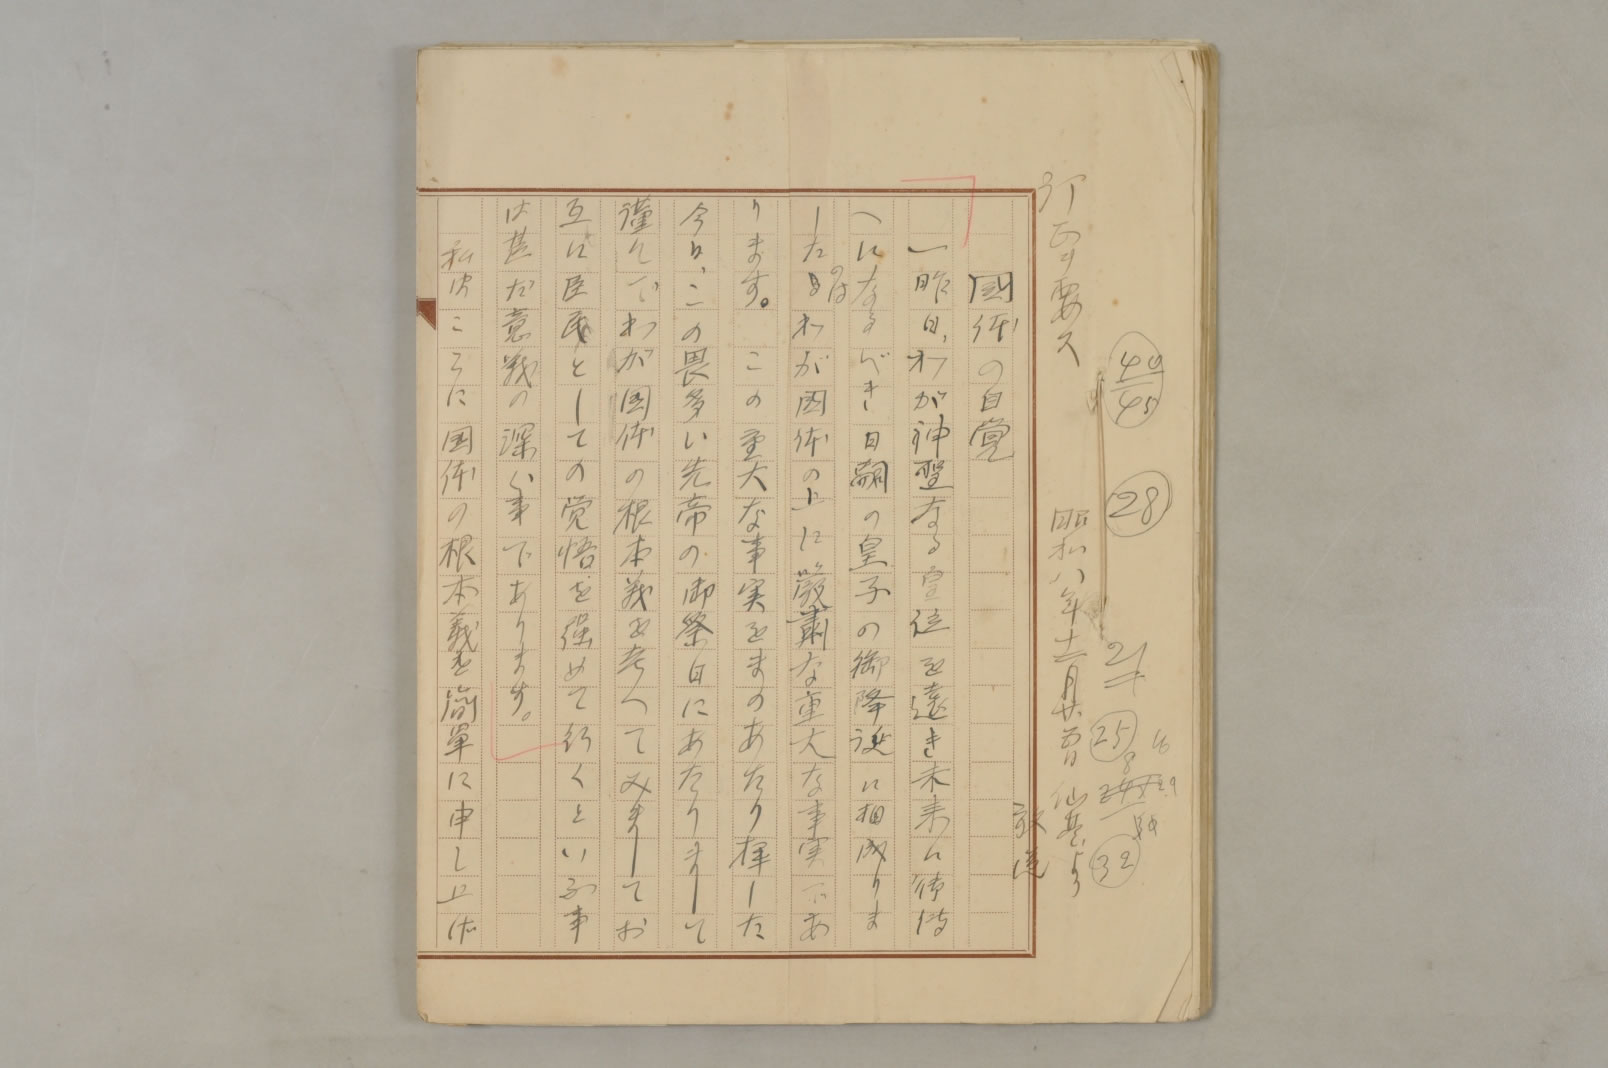 訂正ヲ要ス
40
45
28
21
25
32
昭和八年十二月廿五日 仙基より
放送
国体の自覚
一昨日、わが神聖なる宝位を遠き未来に御伝
へになるべき日嗣の皇子の御降誕に相成りま
したのはわが国体の上に厳粛な重大な事実であ
ります。 この重大な事実をまのあたり拝した
今日、この畏多い先帝の御祭日にあたりまして
謹んでわが国体の根本義を考へてみましてお
互に臣民としての覚悟を強めて行くといふ事
は甚だ意義の深い事であります。
私はこゝに国体の根本義を簡単に申し上げ